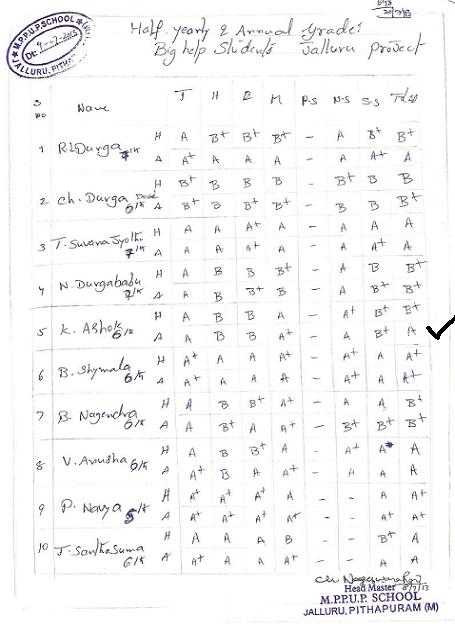 20/7/13
Half-yearly & Annual Grades
Big help Students Jalluru project
M.P.P.U.P. SCHOOL
JALLURU, PITHA
S NO Name T H E M P.S N.S S.S Total
1 R.L. Durga 7th H A B+ B+ B+ - A B+ B+
A A+ A A A - A A+ A
2 Ch. Durga 6th H B+ B B B - B+ B B
A B+ B B+ B+ - B B B+
3 T. Suvana Jyothi 7th H A A A+ A - A A A
A A A A+ A - A A+ A
4 N. Durgababu 7th H A B B B+ - A B B+
A A B B+ B - A B+ B+
5 K. Ashok 6th H A B B A - A+ B+ B+
A A B B A+ - A B+ A
6 B. Shymala 6th H A+ A A A+ - A+ A A+
A A+ A A A - A+ A A+
7 B. Nagendra 6th H A B B+ A+ - A A B+
A A B+ A A+ - B+ B+ B+
8 V. Anusha 6th H A B B+ A - A+ A+ A
A A+ B A A+ - A A A
9 P. Navya 5th H A+ A+ A+ A - - A A+
A A+ A+ A+ A+ - - A A+
10 J. Santhasuma 6th H A A A B - - B+ A
A A+ A A A+ - - A A
Head Master 8/7/13
M.P.P.U.P. SCHOOL
JALLURU, PITHAPURAM (M)